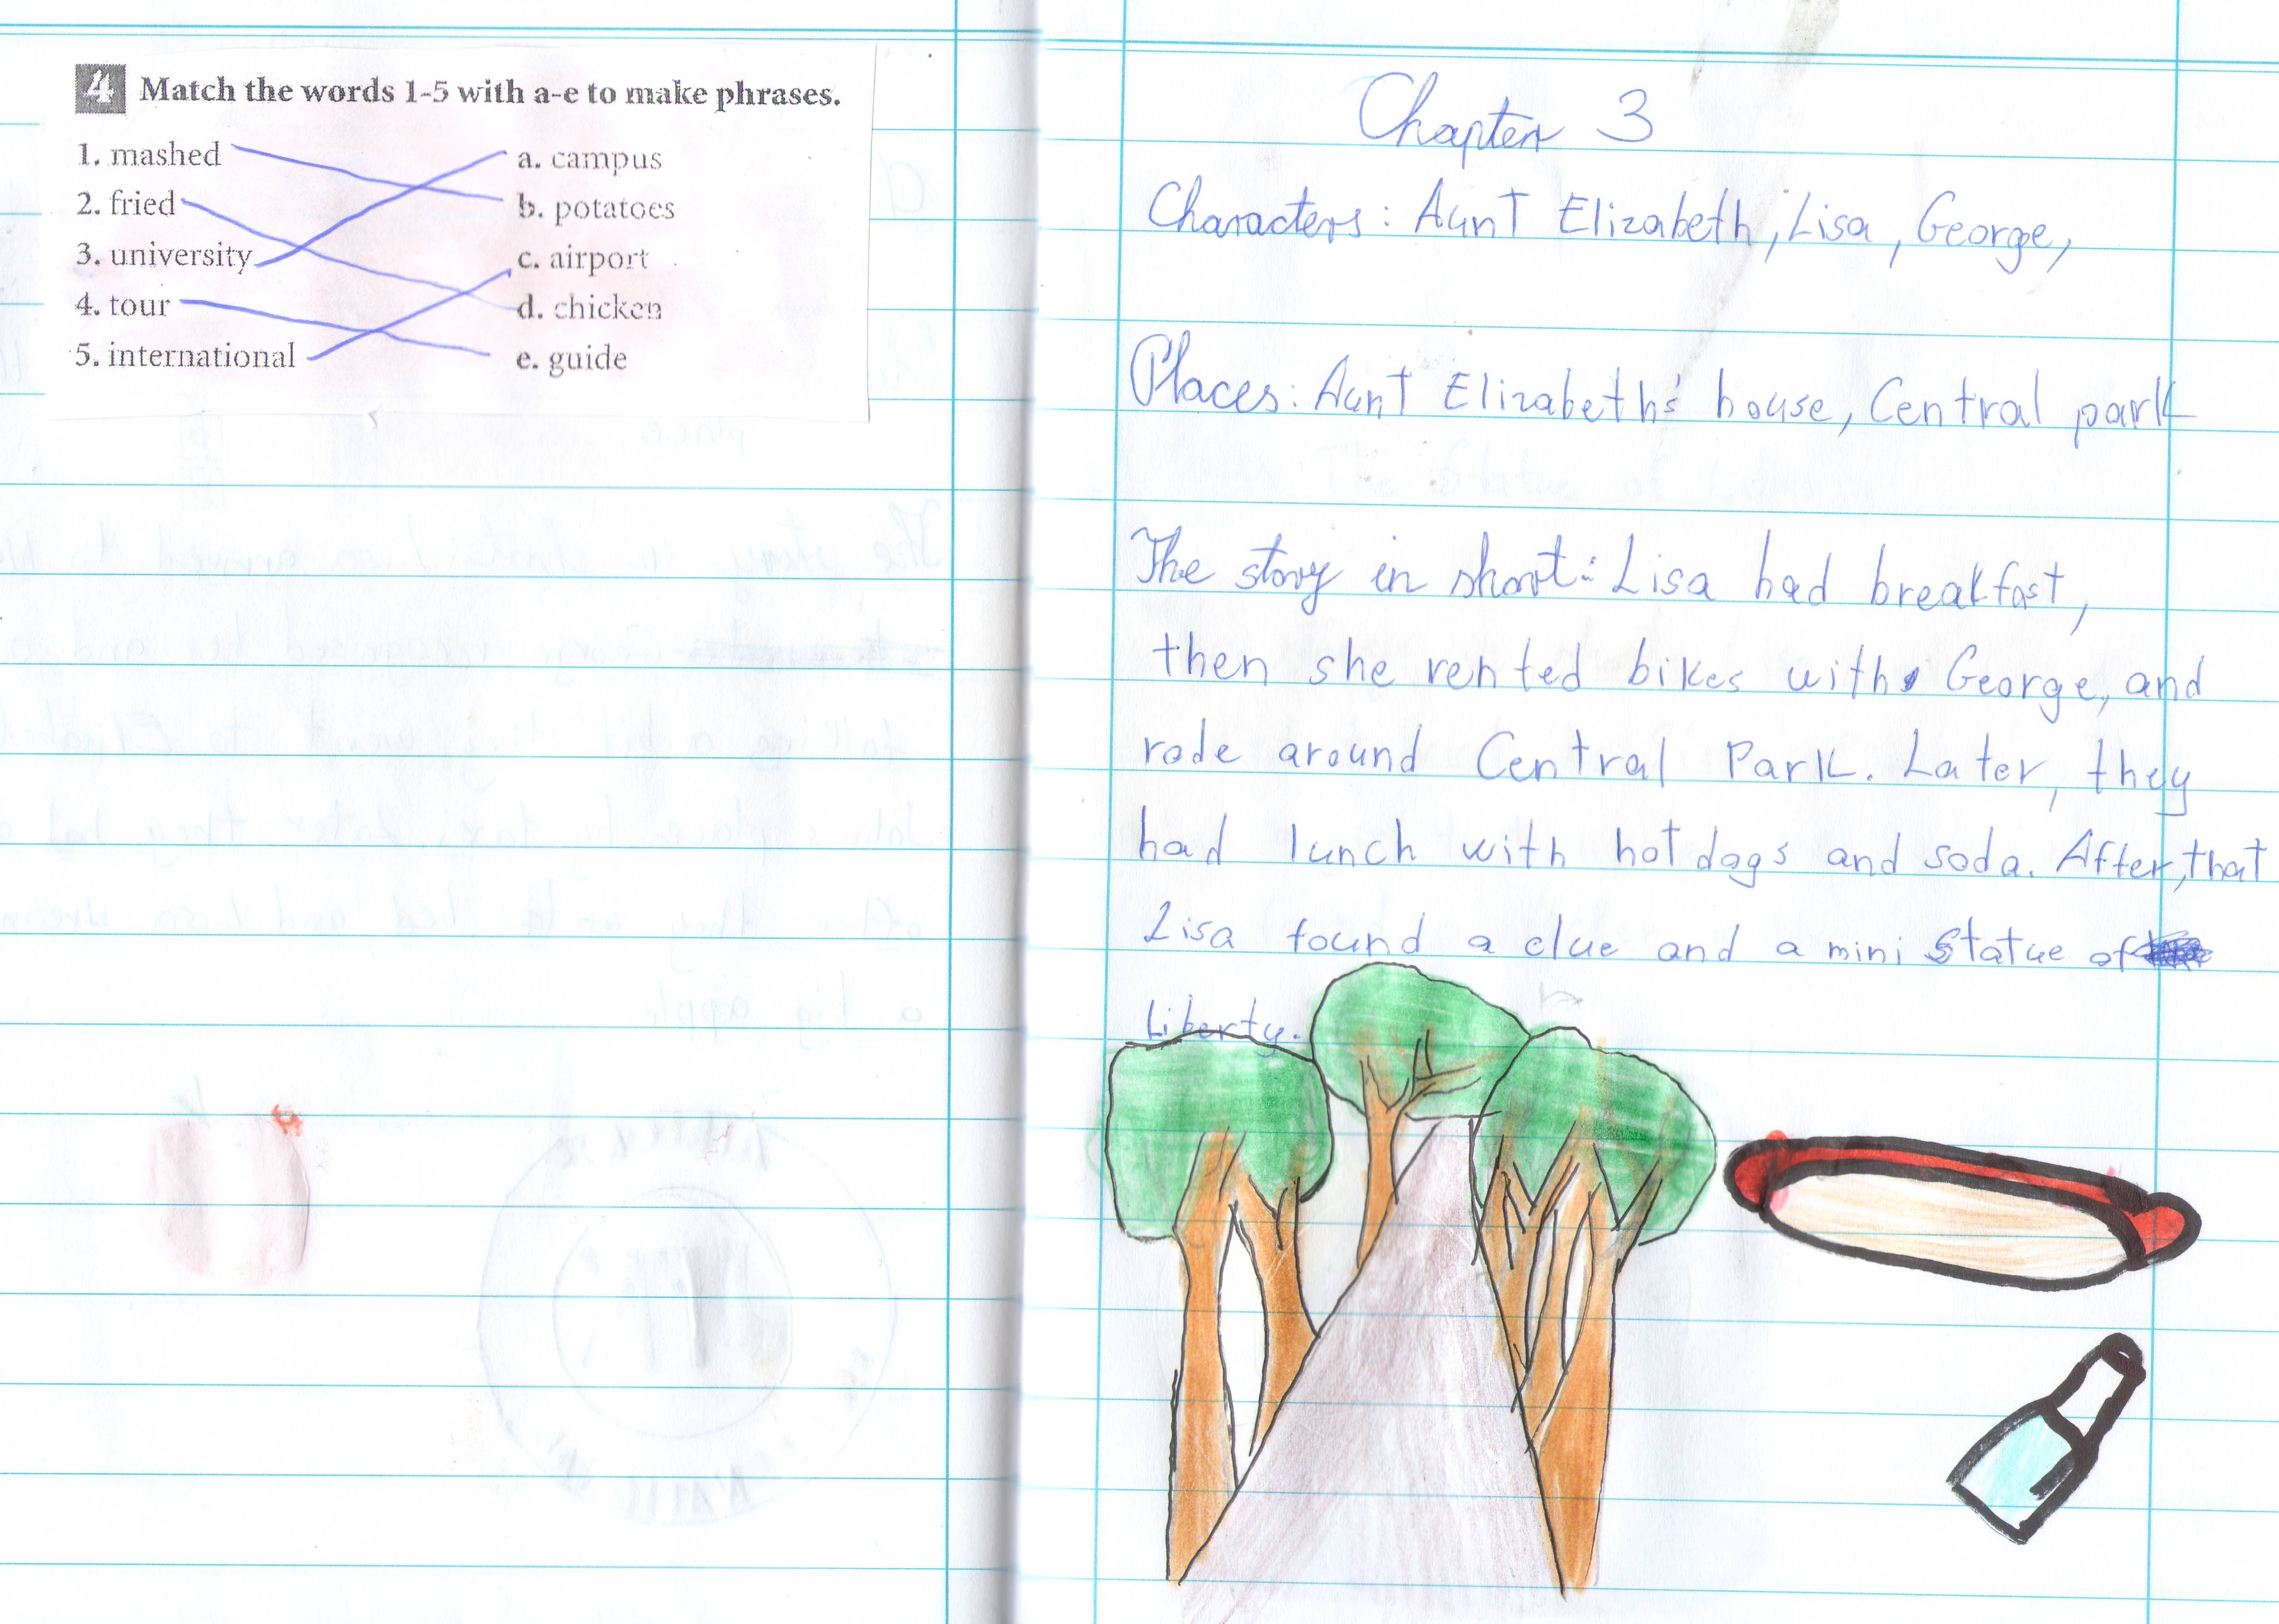 4 Match the words 1-5 with a-e to make phrases.
1. mashed
2. fried
3. university
4. tour
5. international
a. campus
b. potatoes
c. airport
d. chicken
e. guide
Chapter 3
Characters: Aunt Elizabeth, Lisa, George,
Places: Aunt Elizabeth's house, Central park
The story in short: Lisa had breakfast,
then she rented bikes with George, and
rode around Central Park. Later, they
had lunch with hot dogs and soda. After, that
Lisa found a clue and a mini Statue of
Liberty.